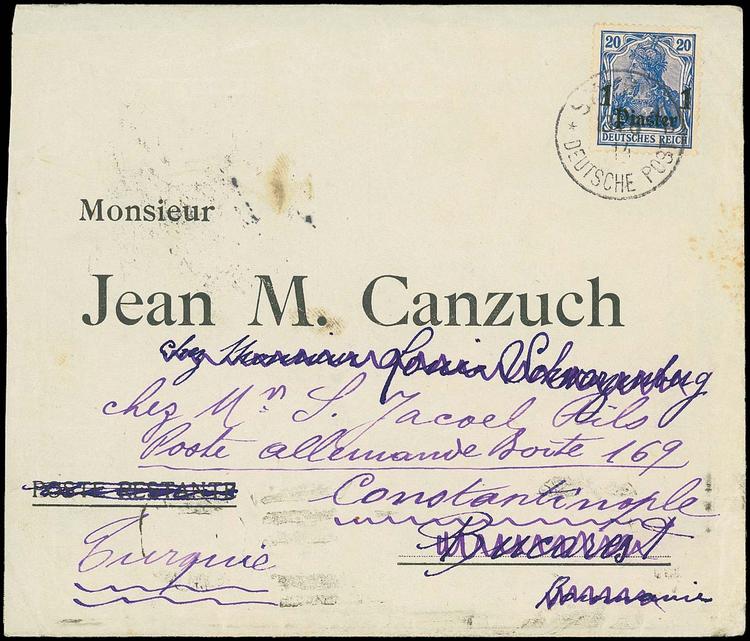 20 20
1 1
Piaster
DEUTSCHES REICH
14
DEUTSCHE POST
Monsieur
Jean M. Canzuch
chez Monsieur Louis Schwarzenberg
chez Mr S. Jacoel Fils
Poste allemande Boite 169
POSTE RESTANTE
Constantinople
Bucarest
Turquie
Roumanie